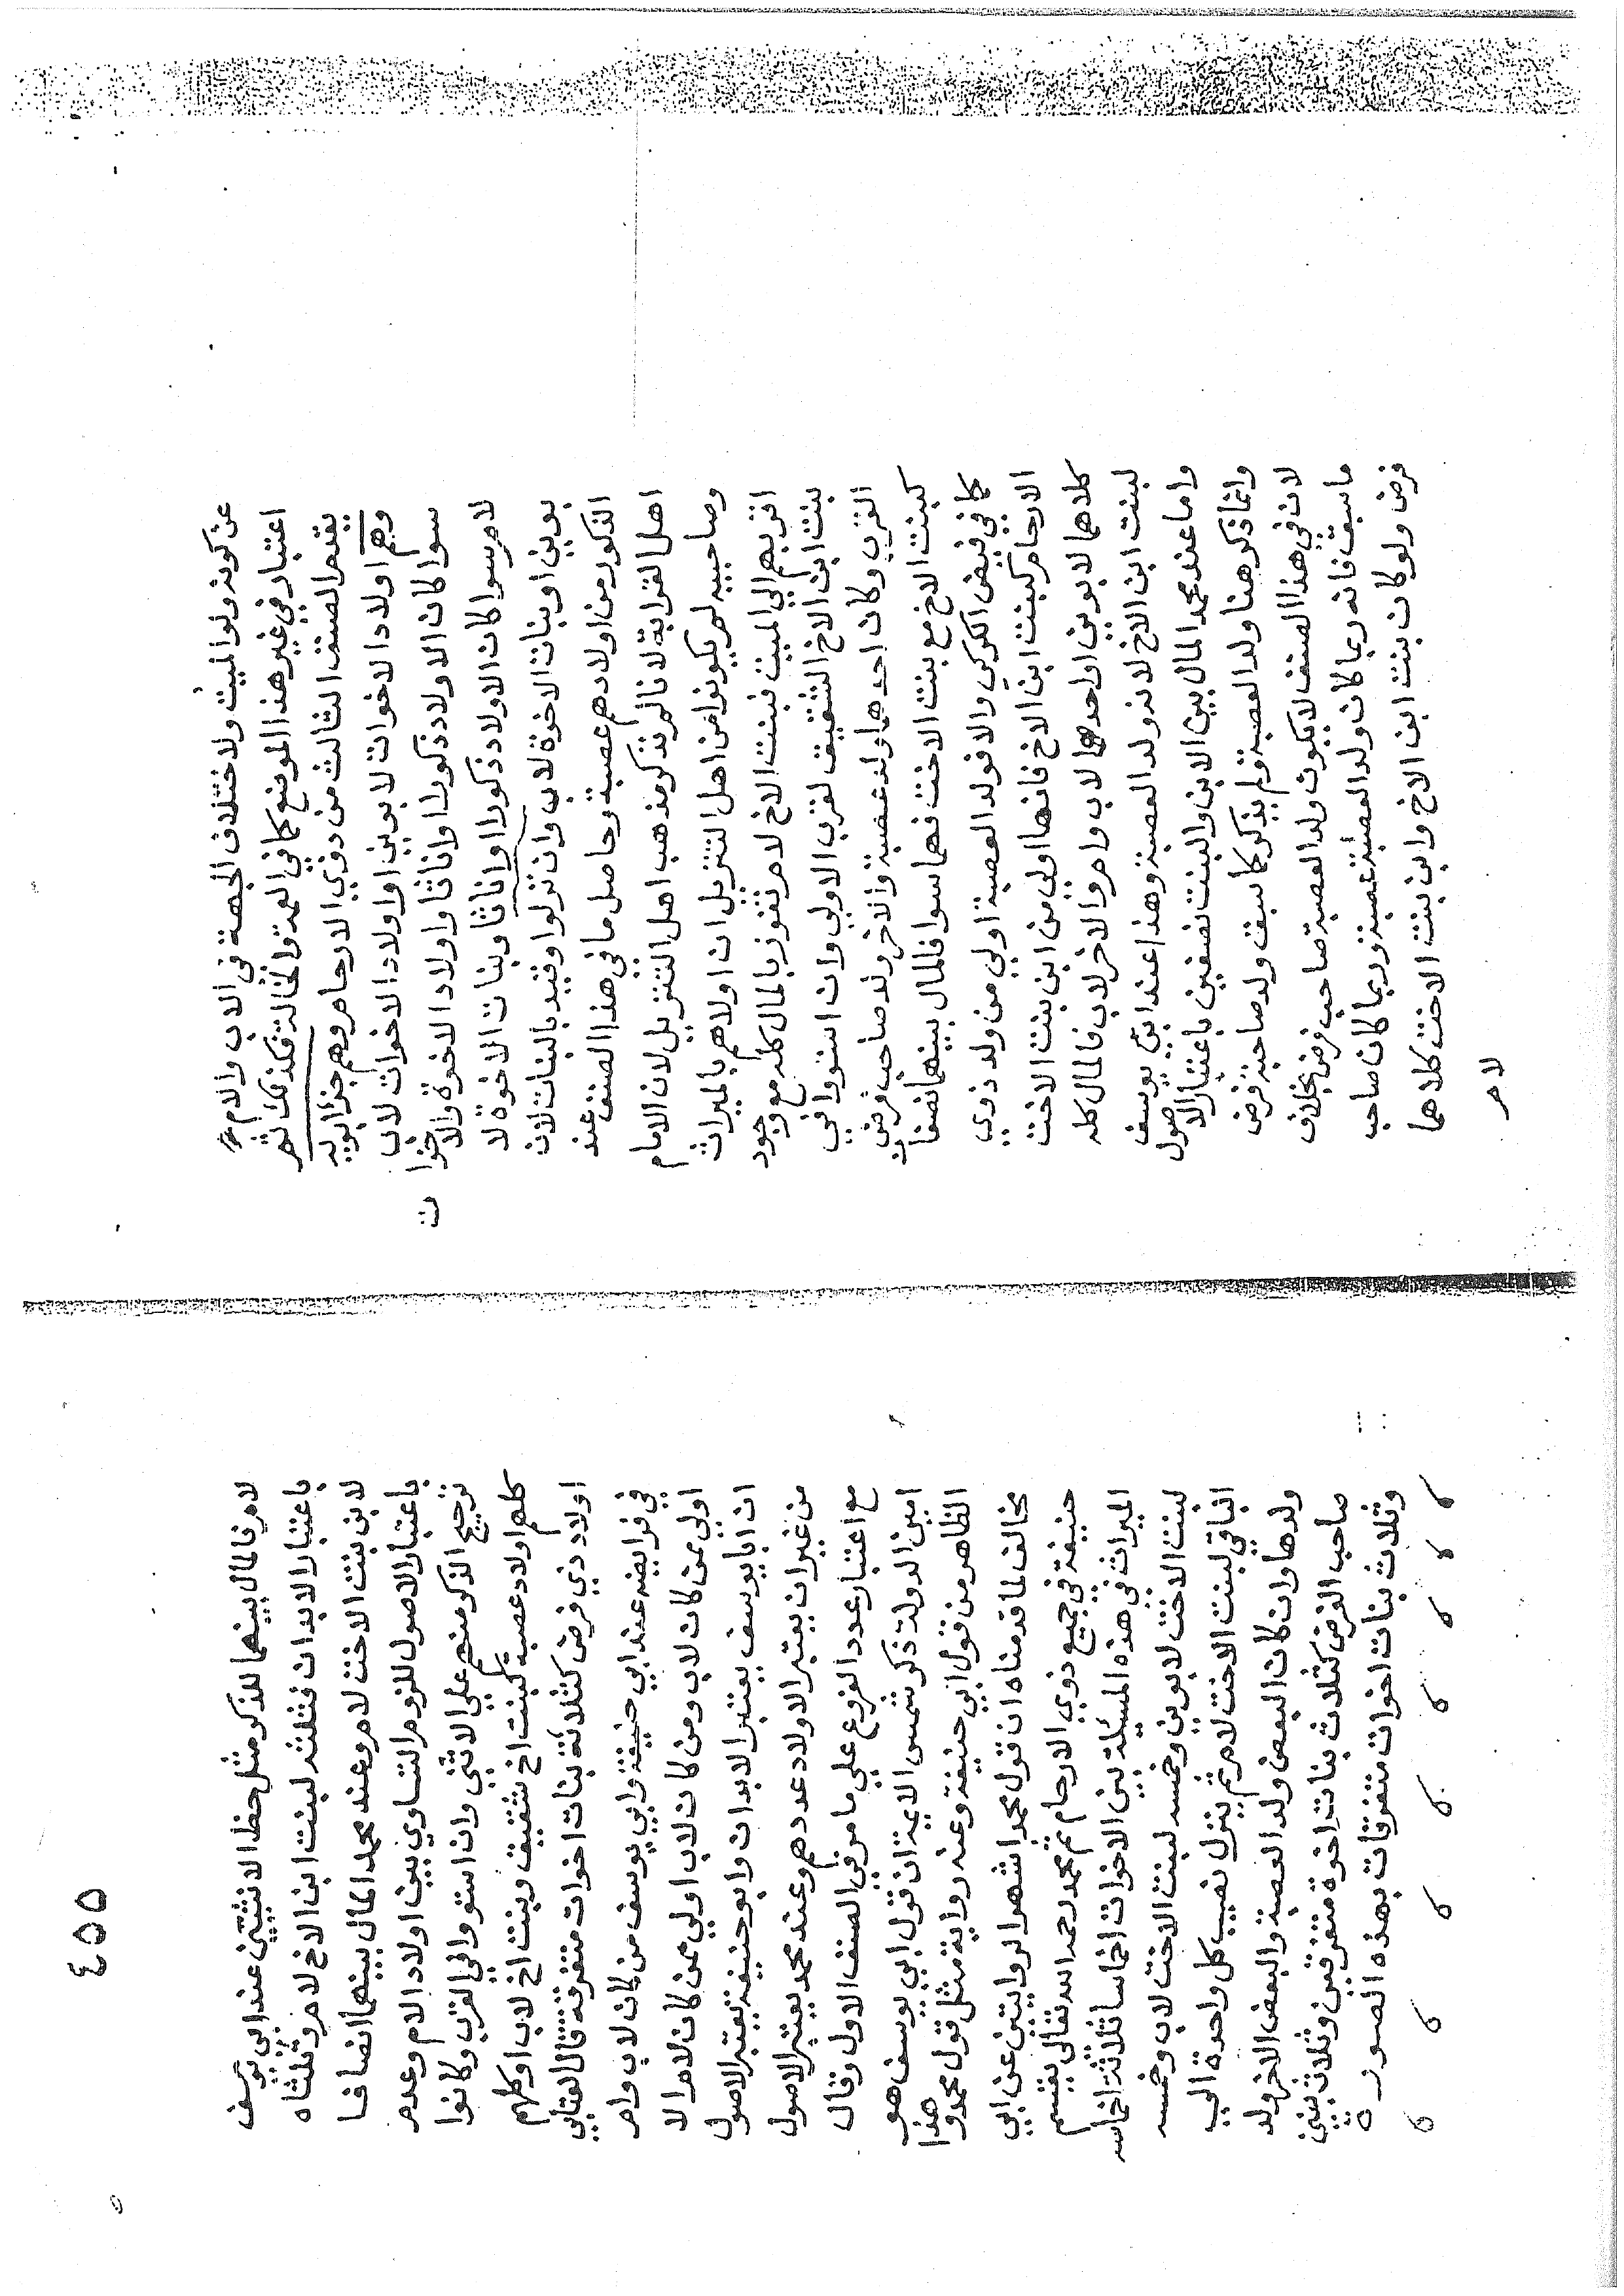 عن كونه ولو الميت ولاختلاف الجهة في الاب والام
اعتبار في غير هذا الموضع كما في العمة والخالة فكذلك ثم
يقدم الصنف الثالث من ذوي الارحام وهم جزء ابويه
وهم اولاد الاخوات لابوين او اولاد الاخوات لاب
سوا كان الاولاد ذكورا او اناثا واولاد الاخوة والاخوات
لام سوا كان الاولاد ذكورا او اناثا وبنات الاخوة لا
بوين او بنات الاخوة لاب وان نزلوا وقيد بالبنات لان
الذكور من اولادهم عصبة وحاصل ما في هذا الصنف عند
اهل القرابة لانا لم نذكر مذهب اهل التنزيل لان الامام
وصاحبيه لم يكونوا من اهل التنزيل ان اولاهم بالميراث
اقربهم الي الميت فبنت الاخ لام تفوز بالمال كله مع وجود
بنت ابن الاخ الشقيق لقرب الاولي وان استووا في
القرب وكان احدهما ولد عصبة والاخر ولد صاحب فرض
كبنت الاخ مع بنت الاخت فهما سوا فالمال بينهما نصفان
كما في فيض الكركي والا فولد العصبة اولي من ولد ذوي
الارحام كبنت ابن الاخ فانها اولي من ابن بنت الاخت
كلاهما لابوين او احدهما لاب وام والاخر لاب فالمال كله
لبنت ابن الاخ لانه ولد العصبة وهذا عند ابي يوسف
واما عند محمد المال بين الابن والبنت نصفين باعتبار الاصول
وانما ذكر هنا ولد العصبة ولم يذكر كما سبق ولد صاحبة فرض
لان في هذا الصنف لا يكون ولد العصبة صاحب فرض بخلاف
ما سبق فانه ربما كان ولد العصبة عصبة وربما كان صاحب
فرض ولو كان بنت ابن الاخ وابن بنت الاخت كلاهما
لام
٤٥٥
لام فالمال بينهما للذكر مثل حظ الانثيين عند ابي يوسف
باعتبار الابدان فثلثه لبنت ابن الاخ لام وثلثاه
لابن بنت الاخت لام وعند محمد المال بينهما انصافا
باعتبار الاصول للزوم التساوي بين اولاد الام وعدم
ترجيح الذكر منهم علي الانثي وان استووا في القرب وكانوا
كلهم اولاد عصبة كبنت اخ شقيق وبنت اخ لاب او كلهم
اولاد ذي فرض كثلاثة بنات اخوات متفرقة قال العتابي
في فرايضه عند ابي حنيفة وابي يوسف من كان لاب وام
اولي ممن كان لاب ومن كان لاب اولي ممن كان لام الا
ان ابا يوسف يعتبر الابدان وابو حنيفة يعتبر الاصول
من غير ان يعتبر الاولاد عددهم وعند محمد يعتبر الاصول
مع اعتبار عدد الفروع علي ما مر في الصنف الاول وقال
امين الدولة ذكر شمس الايمة ان قول ابي يوسف هو
الظاهر من قول ابي حنيفة وعنه رواية مثل قول محمد وهذا
مخالف لما قدمناه ان قول محمد اشهر الروايتين عن ابي
حنيفة في جميع ذوي الارحام ثم محمد رحمه الله تعالي يقسم
الميراث في هذه المسيلة بين الاخوات اخماسا ثلاثة اخماسه
لبنت الاخت لابوين وخمسه لبنت الاخت لاب وخمسه
لبنت الاخت لام ثم ينزل نصيب كل واحدة الي
ولدها وان كان البعض ولد العصبة والبعض الاخر ولد
صاحب الفرض كثلاث بنات اخوة متفرقين وثلاث بنين
وثلاث بنات اخوات متفرقات بهذه الصورة